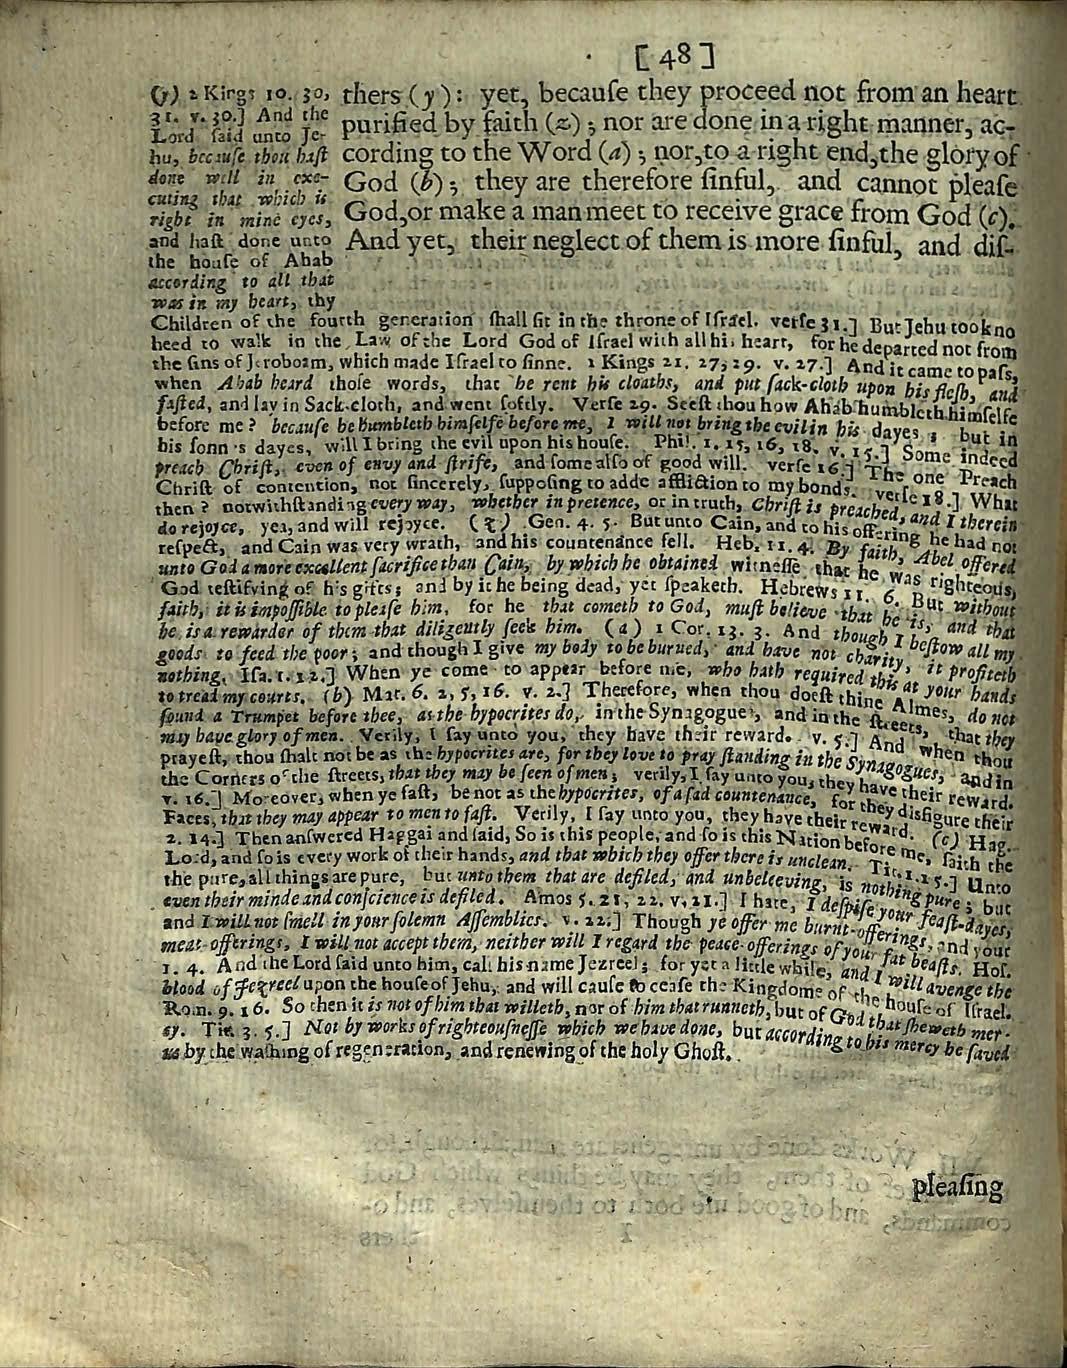 [ 48 ]
thers (y): yet, becauſe they proceed not from an heart
purified by faith (z); nor are done in a right manner, ac-
cording to the Word (a); nor, to a right end, the glory of
God (b); they are therefore ſinful, and cannot pleaſe
God, or make a man meet to receive grace from God (c).
And yet, their neglect of them is more ſinful, and diſ-
(y) 2 Kings 10. 30,
31. v. 30.] And the
Lord ſaid unto Je-
hu, becauſe thou haſt
done well in exe-
cuting that which is
right in mine eyes,
and haſt done unto
the houſe of Ahab
according to all that
was in my heart, thy
Children of the fourth generation ſhall ſit in the throne of Iſrael. verſe 31.] But Jehu took no
heed to walk in the Law of the Lord God of Iſrael with all his heart, for he departed not from
the ſins of Jeroboam, which made Iſrael to ſinne. 1 Kings 21. 27, 29. v. 27.] And it came to paſs,
when Ahab heard thoſe words, that he rent his cloaths, and put ſack-cloth upon his fleſh, and
faſted, and lay in Sack-cloth, and went ſoftly. Verſe 29. Seeſt thou how Ahab humbleth himſelfe
before me? becauſe he humbleth himſelfe before me, I will not bring the evil in his dayes; but in
his ſonn's dayes, will I bring the evil upon his houſe. Phil. 1. 15, 16, 18. v. 15.] Some indeed
preach Chriſt, even of envy and ſtrife, and ſome alſo of good will. verſe 16.] The one Preach
Chriſt of contention, not ſincerely, ſuppoſing to adde affliction to my bonds. verſe 18.] What
then? notwithſtanding every way, whether in pretence, or in truth, Chriſt is preached, and I therein
do rejoyce, yea, and will rejoyce. (z) Gen. 4. 5. But unto Cain, and to his offering he had not
reſpect, and Cain was very wrath, and his countenance fell. Heb. 11. 4. By faith, Abel offered
unto God a more excellent ſacrifice than Cain, by which he obtained witneſſe that he was righteous,
God teſtifying of his gifts; and by it he being dead, yet ſpeaketh. Hebrews 11. 6. But without
faith, it is impoſſible to pleaſe him, for he that cometh to God, muſt believe that he is, and that
he is a rewarder of them that diligently ſeek him. (a) 1 Cor. 13. 3. And though I beſtow all my
goods to feed the poor; and though I give my body to be burued, and have not charity, it profiteth
nothing. Iſa. 1. 12.] When ye come to appear before me, who hath required this at your hands
to tread my courts. (b) Mat. 6. 2, 5, 16. v. 2.] Therefore, when thou doeſt thine Almes, do not
ſound a Trumpet before thee, as the hypocrites do, in the Synagogues, and in the ſtreets, that they
may have glory of men. Verily, I ſay unto you, they have their reward. v. 5.] And when thou
prayeſt, thou ſhalt not be as the hypocrites are, for they love to pray ſtanding in the Synagogues, and in
the Corners of the ſtreets, that they may be ſeen of men; verily, I ſay unto you, they have their reward.
v. 16.] Moreover, when ye faſt, be not as the hypocrites, of a ſad countenance, for they disfigure their
Faces, that they may appear to men to faſt. Verily, I ſay unto you, they have their reward. (c) Hag.
2. 14.] Then anſwered Haggai and ſaid, So is this people, and ſo is this Nation before me, ſaith the
Lord, and ſo is every work of their hands, and that which they offer there is unclean. Tit. 1. 15.] Unto
the pure, all things are pure, but unto them that are defiled, and unbeleeving, is nothing pure; but
even their minde and conſcience is defiled. Amos 5. 21, 22. v. 21.] I hate, I deſpiſe your feaſt-dayes,
and I will not ſmell in your ſolemn Aſſemblies. v. 22.] Though ye offer me burnt-offerings, and your
meat-offerings, I will not accept them, neither will I regard the peace-offerings of your fat beaſts. Hoſ.
1. 4. And the Lord ſaid unto him, call his name Jezreel; for yet a little while, and I will avenge the
blood of Jezreel upon the houſe of Jehu, and will cauſe to ceaſe the Kingdome of the houſe of Iſrael.
Rom. 9. 16. So then it is not of him that willeth, nor of him that runneth, but of God that ſheweth mer-
sy. Tit. 3. 5.] Not by works of righteouſneſſe which we have done, but according to his mercy he ſaved
us by the waſhing of regeneration, and renewing of the holy Ghoſt.
pleaſing